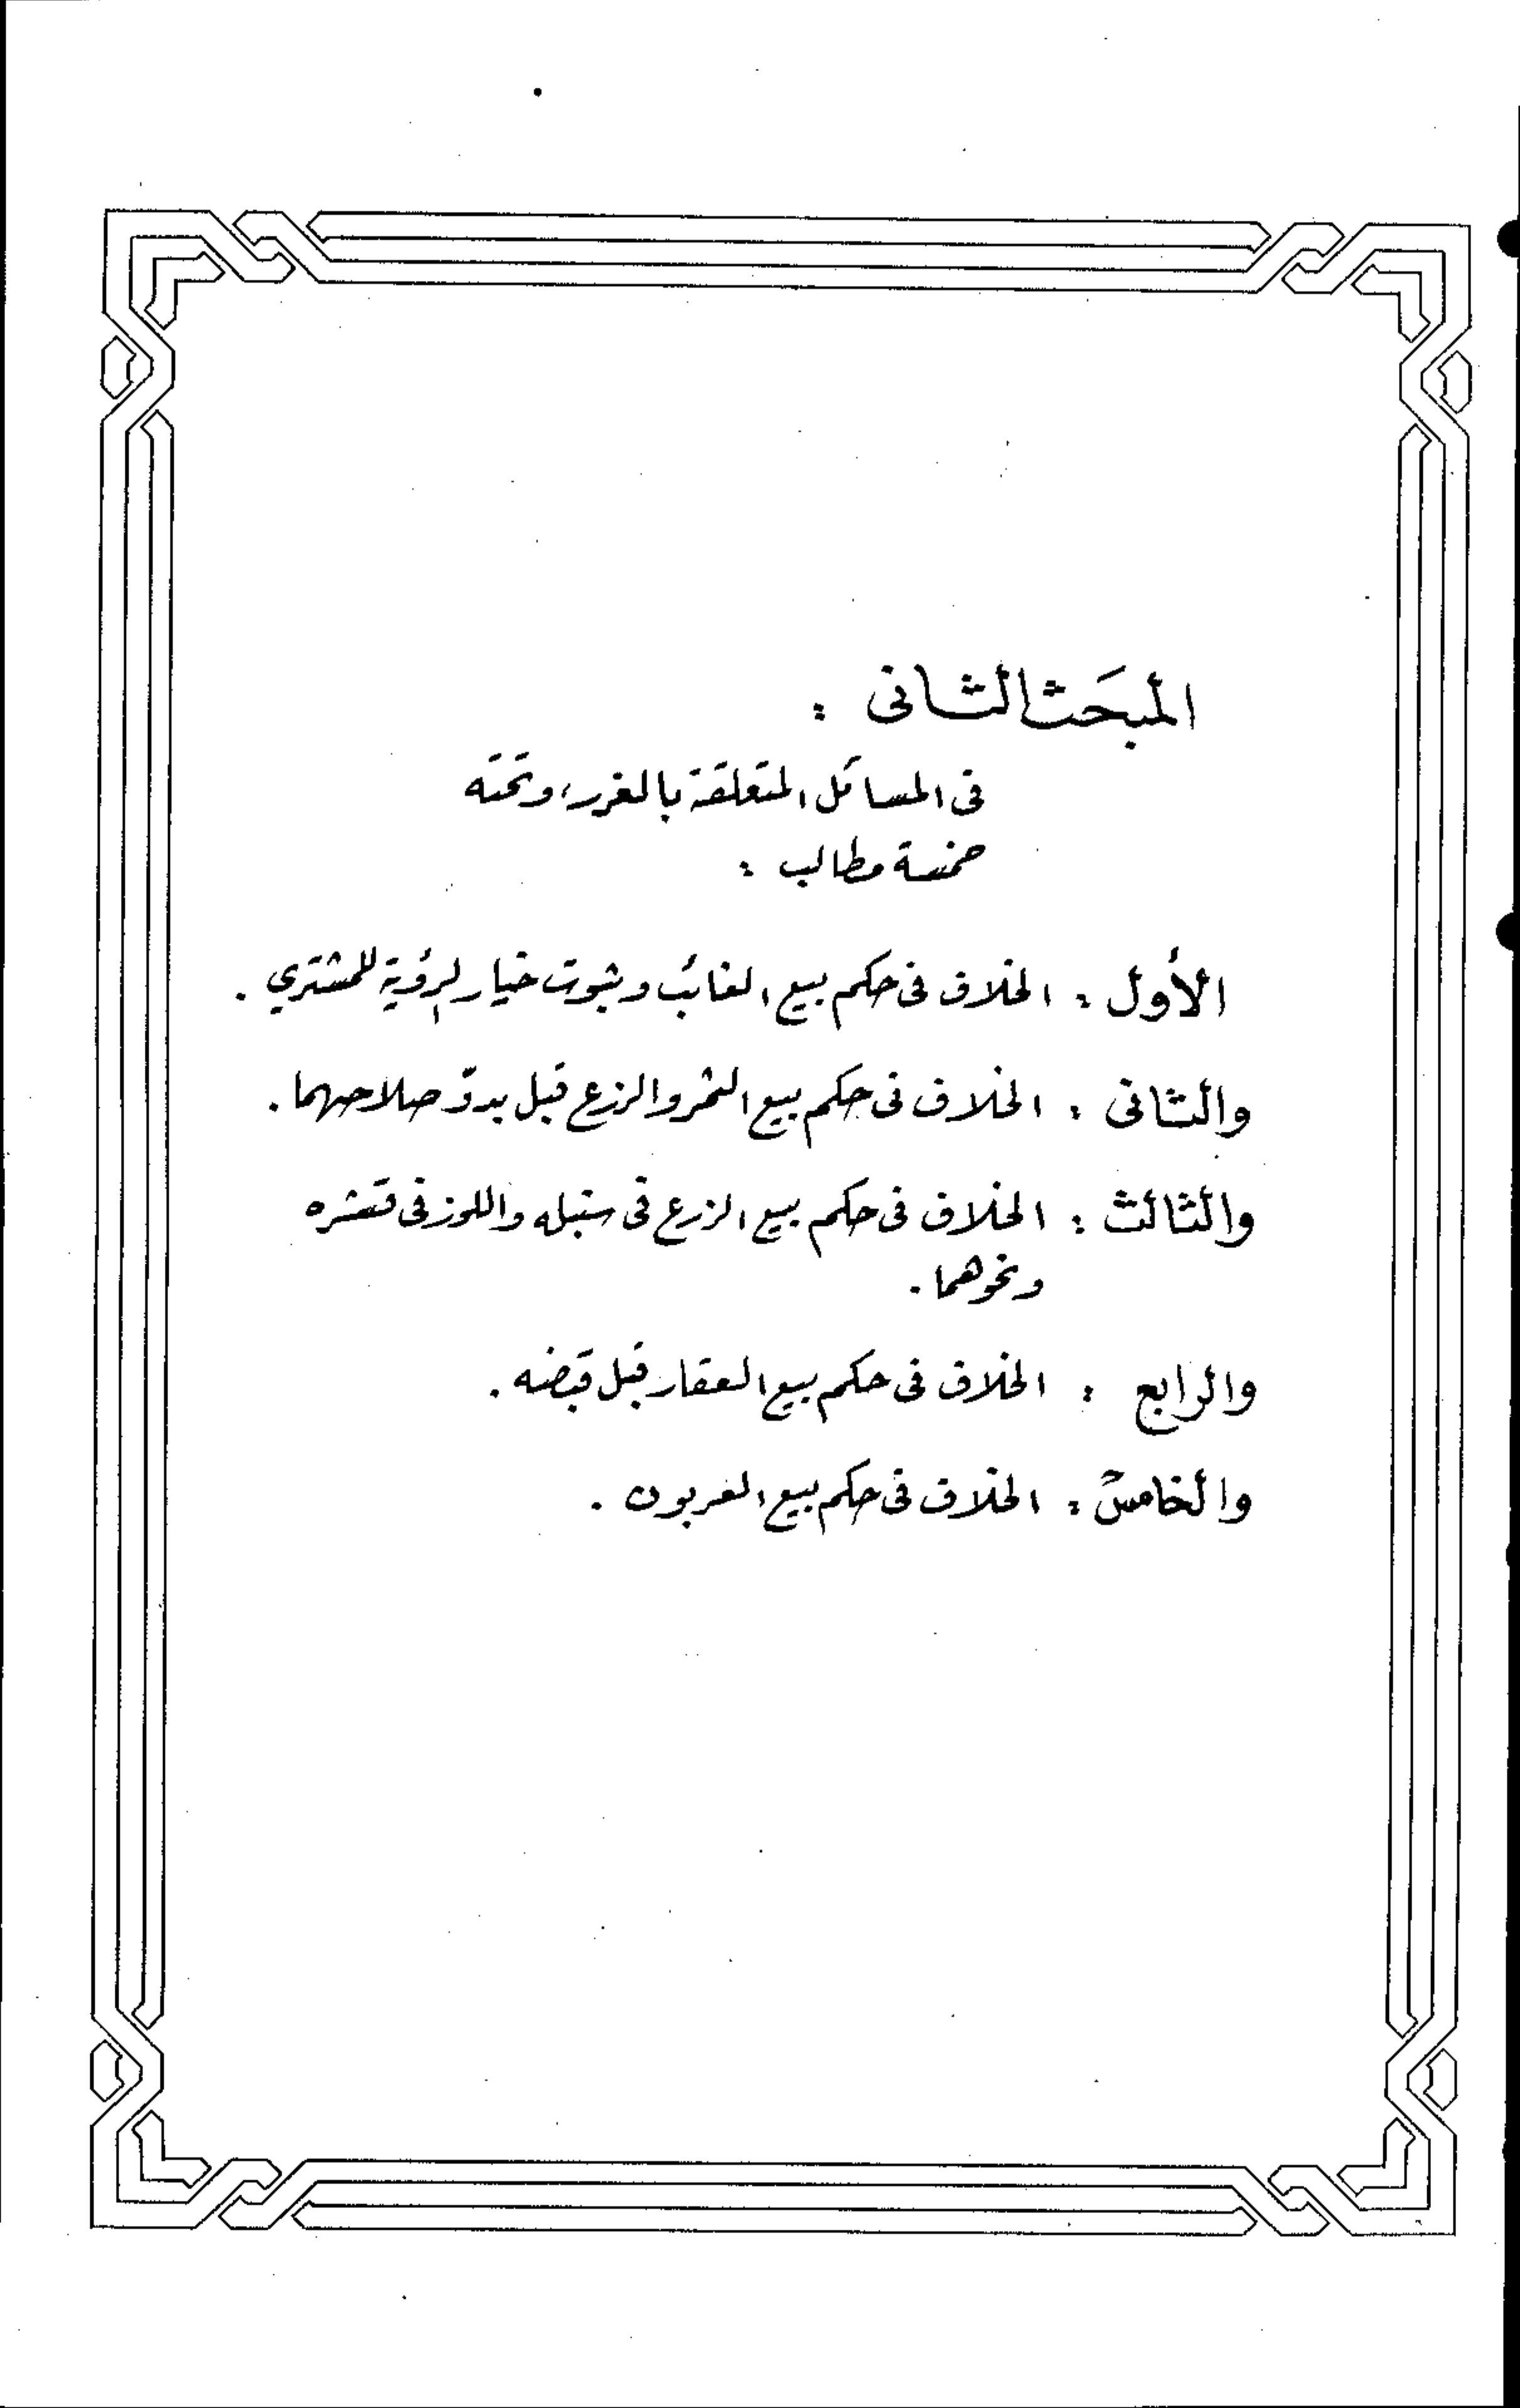 المبحَث الثانى :
فى المسائل المتعلقة بالغرر، وتحته
خمسة مطالب :
الأول : الخلاف فى حكم بيع الغائب وثبوت خيار الرؤية للمشتري .
والثانى : الخلاف فى حكم بيع الثمر والزرع قبل بدوّ صلاحهما .
والثالث : الخلاف فى حكم بيع الزرع فى سنبله واللوز فى قشره
ونحوهما .
والرابع : الخلاف فى حكم بيع العقار قبل قبضه .
والخامس : الخلاف فى حكم بيع العربون .